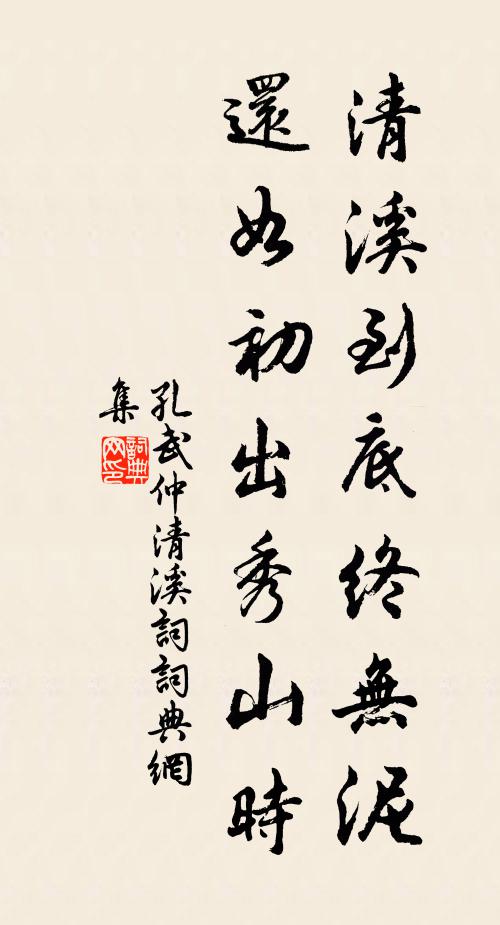 清溪到底終無泥
還如初出秀山時
孔武仲清溪詞詞典網
集
詞典
网印